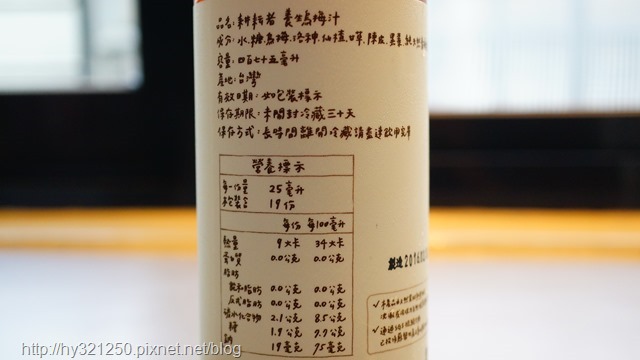 品名:耕耘者 養生烏梅汁
成分:水.糖.烏梅.洛神.仙楂.甘草.陳皮.桑椹.
容量:四百七十五毫升
產地:台灣
有效日期:如包裝標示
保存期限:未開封冷藏三十天
保存方式:長時間離開冷藏請盡速飲用完畢
營養標示
每一份量 25毫升
本包裝含 19份
每份 每100毫升
熱量 9大卡 34大卡
蛋白質 0.0公克 0.0公克
脂肪
飽和脂肪 0.0公克 0.0公克
反式脂肪 0.0公克 0.0公克
碳水化合物 2.1公克 8.5公克
糖 1.9公克 7.7公克
鈉 19毫克 75毫克
製造2016
http://hy321250.pixnet.net/blog